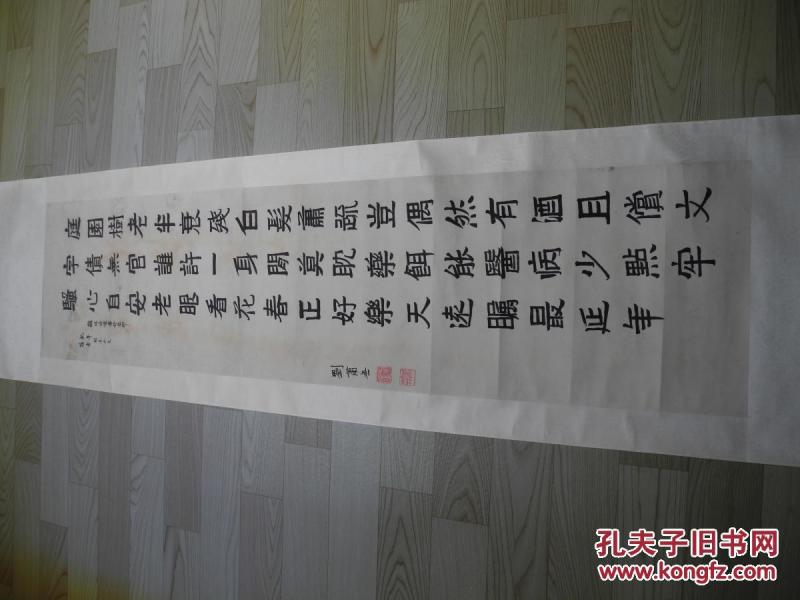 庭園樹老半衰殘白髮蕭疏豈偶然有酒且償文
字債無官誰許一身閑莫耽藥餌能醫病少點牢
騷心自安老眼看花春正好樂天遠矚最延年
劉蕭無
孔夫子旧书网
www.kongfz.com